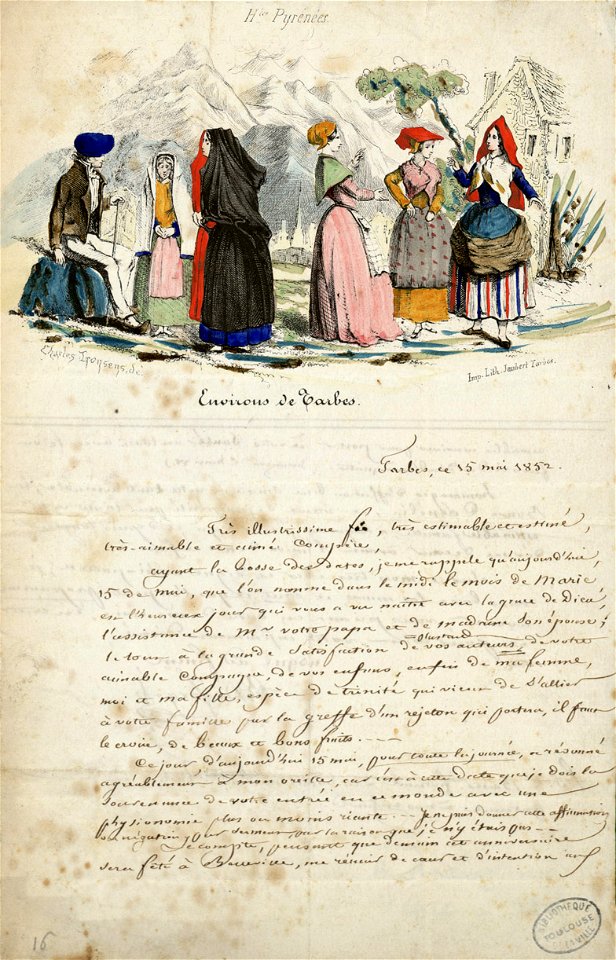 Htes Pyrénées.
Charles Tronsens, de.
Imp. Lith. Jaubert Tarbes.
Environs de Tarbes.
Tarbes, ce 15 mai 1852.
Très illustrissime très estimable et estimé,
très-aimable et aimé Compère,
ayant la bosse des dates, je me rappele qu'aujourd'hui,
15 de mai, que l'on nomme dans le midi le mois de Marie
est l'heureux jour qui vous a vu naître avec la grace de Dieu,
l'assistance de Mr votre papa et de madame son épouse;
le tout à la grande satisfaction de vos auteurs, de votre
aimable Compagne de vos enfans, enfin de ma femme,
moi et ma fille, espèce de trinité qui vient de s'allier
à votre famille par la greffe d'un rejeton qui portera, il faut
le croire, de beaux et bons fruits.
Ce jour, d'aujourd'hui 15 mai, pour toute la journée, a résonné
agréablement à mon oreille, car c'est à cette date que je dois la
souvenance de votre entrée en ce monde avec une
physionomie plus ou moins riante Je ne puis donner cette affirmation
ou négation, pour par la raison que je n'y étais pas
Je compte, pensant que demain cet anniversaire
sera fêté à Belleville, me réunir de cœur et d'intention
16
BIBLIOTHEQUE
TOULOUSE
DE LA VILLE